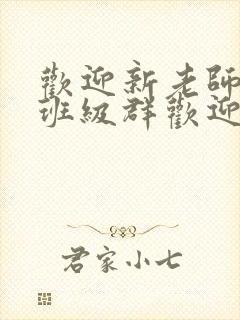 歡迎新老師
班級群歡迎
君家小七